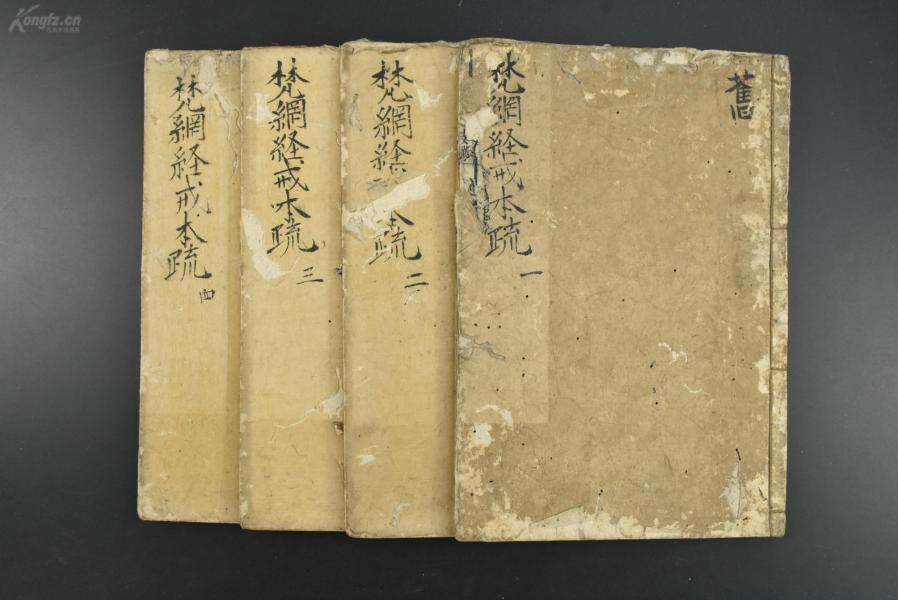 Kongfz.cn
舊
梵網経戒本疏 一
梵網経 本疏 二
梵網経戒本疏 三
梵網経戒本疏 四